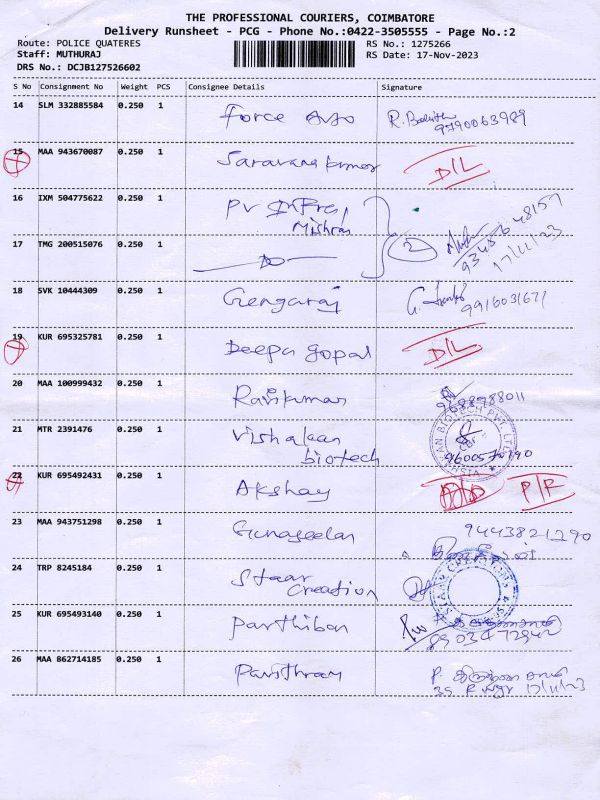 THE PROFESSIONAL COURIERS, COIMBATORE
Delivery Runsheet - PCG - Phone No.:0422-3505555 - Page No.:2
Route: POLICE QUATERES
Staff: MUTHURAJ
DRS No.: DCJB127526602
RS No.: 1275266
RS Date: 17-Nov-2023
S No Consignment No Weight PCS Consignee Details Signature
14 SLM 332885584 0.250 1 Force
9790063989
15 MAA 943670087 0.250 1 Saravana kumar D/L
16 IXM 504775622 0.250 1 PV Infra,
Mishras
2
9345648157
17/11/23
17 TMG 200515076 0.250 1 — DO —
18 SVK 10444309 0.250 1 Gengaraj
19 KUR 695325781 0.250 1 Deepa gopal D/L
20 MAA 100999432 0.250 1 Ravikumar
9688788011
21 MTR 2391476 0.250 1 Vishakan
biotech
22 KUR 695492431 0.250 1 Akshay P/R
23 MAA 943751298 0.250 1 Gunaseelan 9443821290
24 TRP 8245184 0.250 1 Staar
Creation
25 KUR 695493140 0.250 1 Parthiban
8903472942
26 MAA 862714185 0.250 1 Pavithraa
17/11/23